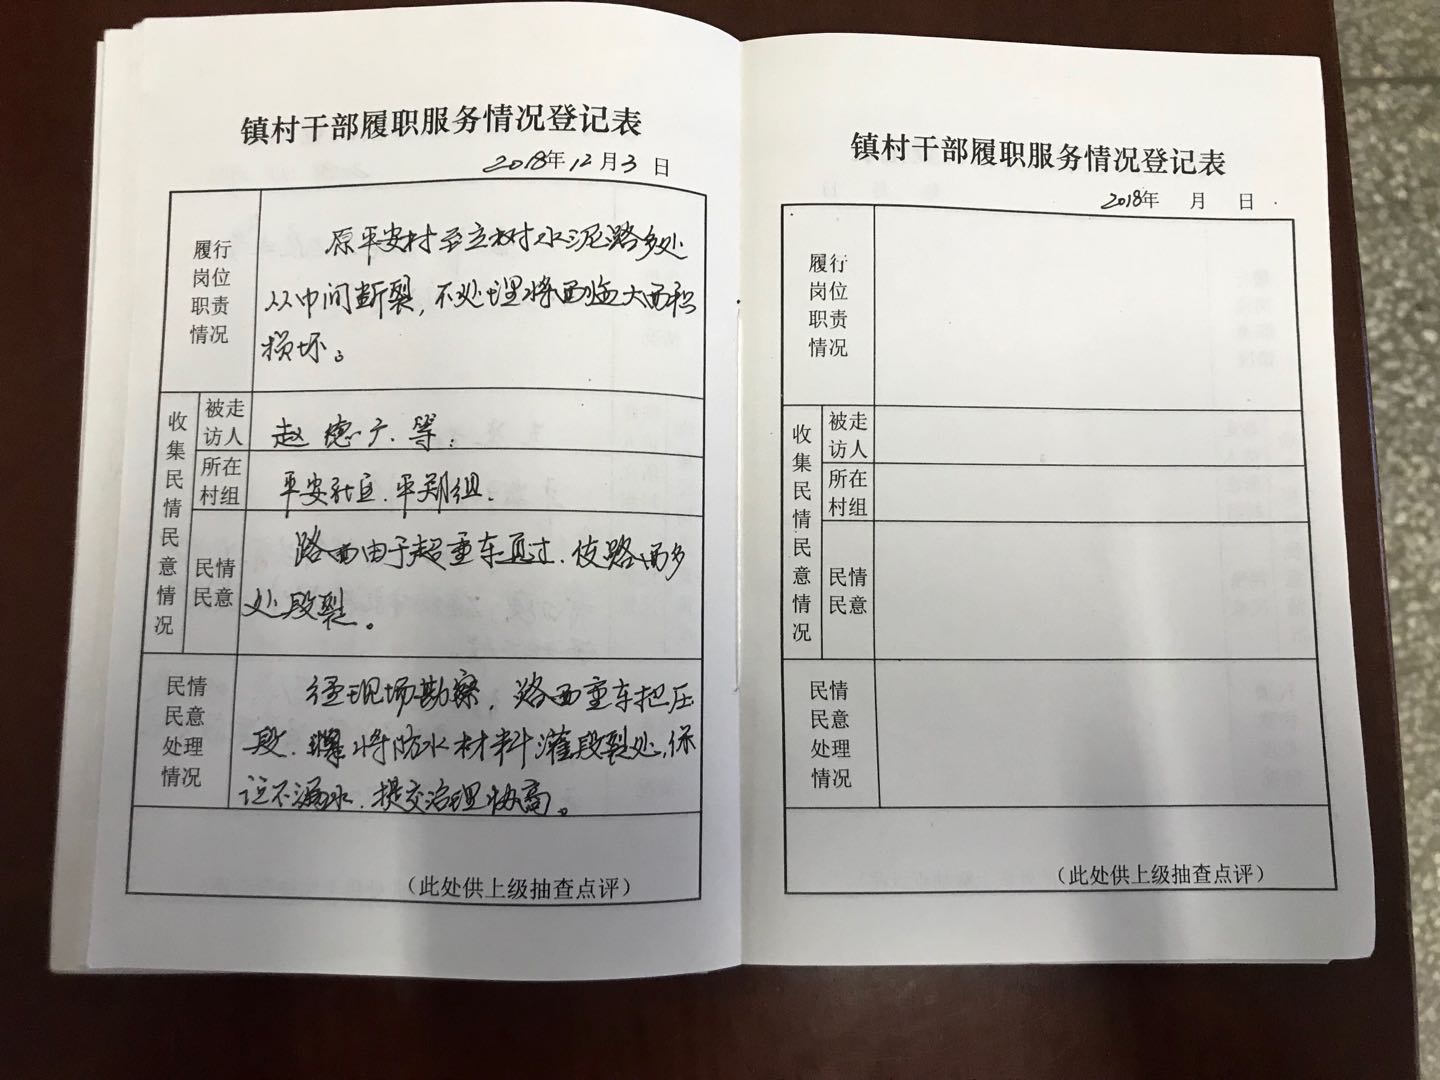 镇村干部履职服务情况登记表
2018年12月3日
履行
岗位
职责
情况
原平安村至立树水泥路多处
从中间断裂,不处理将面临大面积
损坏。
收集民情民意情况
被走
访人
赵德广.等.
所在
村组
平安社区.平郑组.
民情
民意
路面由于超重车通过.使路面多
处段裂。
民情
民意
处理
情况
经现场勘察,路面重车把压
段.将防水材料灌段裂处,保
证不漏水.提交治理协商。
(此处供上级抽查点评)
镇村干部履职服务情况登记表
2018年 月 日
履行
岗位
职责
情况
收集民情民意情况
被走
访人
所在
村组
民情
民意
民情
民意
处理
情况
(此处供上级抽查点评)